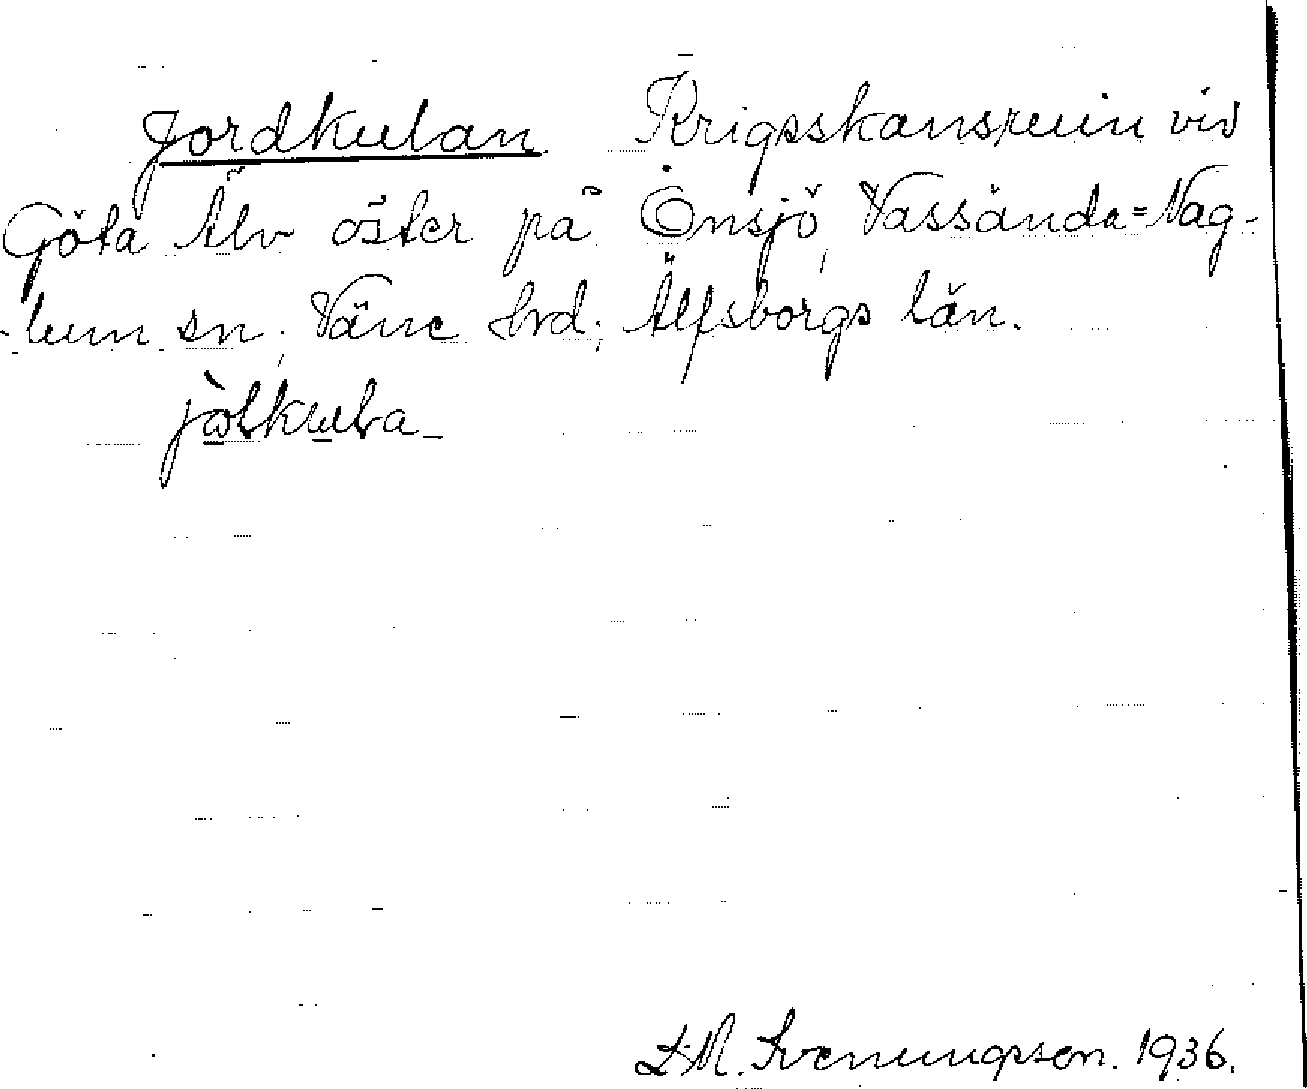 Jordkulan Krigsskansruin vid
Göta Älv öster på Önsjö, Vassända=Nag-
-lum sn, Väne hrd, Älfsborgs län.
L.M. Svenungsson. 1936.